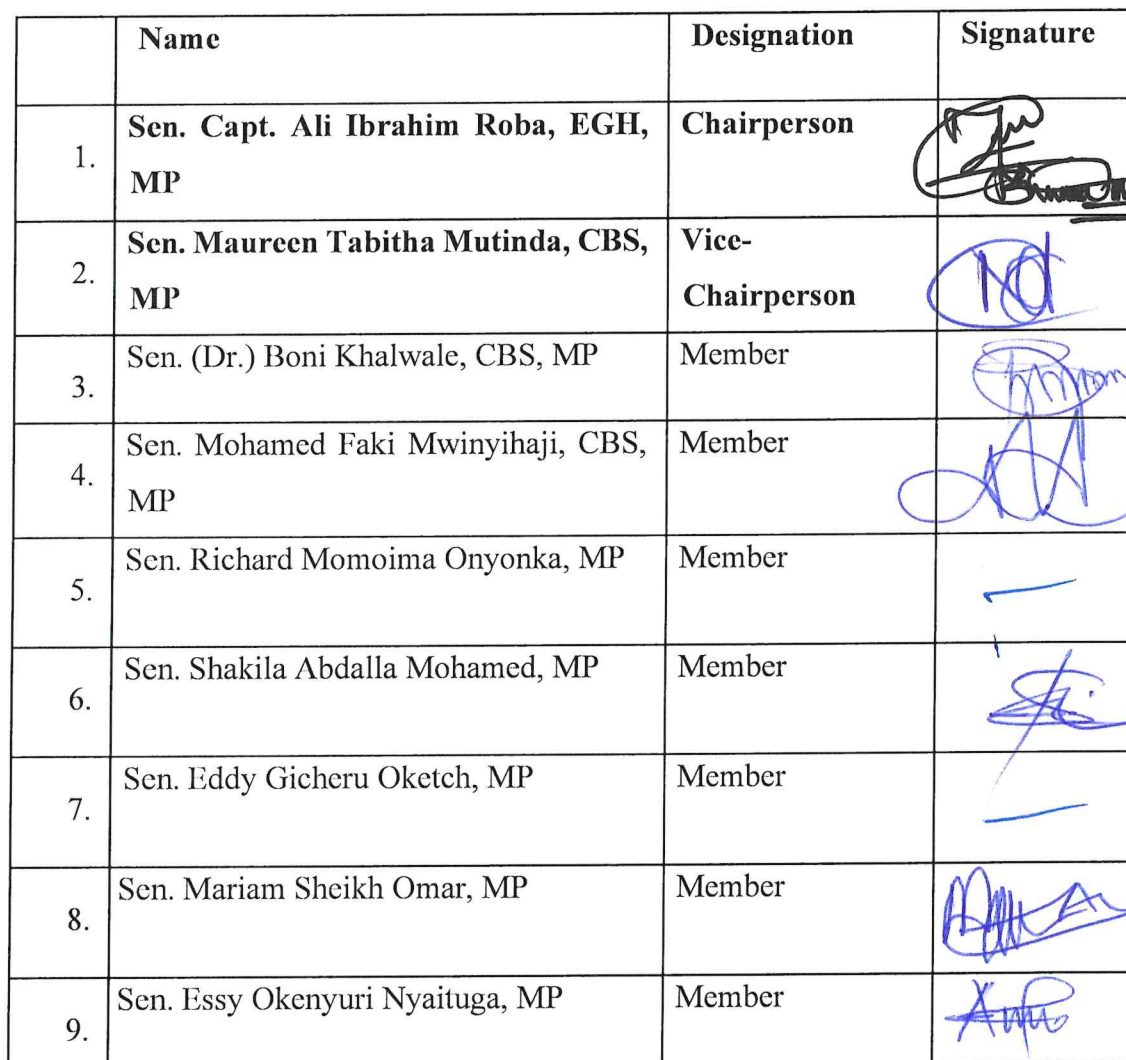 Name Designation Signature
1. Sen. Capt. Ali Ibrahim Roba, EGH, Chairperson
MP
2. Sen. Maureen Tabitha Mutinda, CBS, Vice-
MP Chairperson
3. Sen. (Dr.) Boni Khalwale, CBS, MP Member
4. Sen. Mohamed Faki Mwinyihaji, CBS, Member
MP
5. Sen. Richard Momoima Onyonka, MP Member
6. Sen. Shakila Abdalla Mohamed, MP Member
7. Sen. Eddy Gicheru Oketch, MP Member
8. Sen. Mariam Sheikh Omar, MP Member
9. Sen. Essy Okenyuri Nyaituga, MP Member